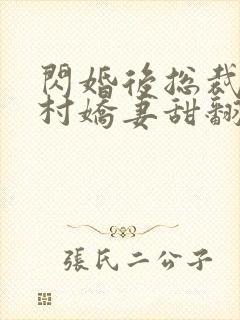 閃婚後總裁
村嬌妻甜翻
張氏二公子